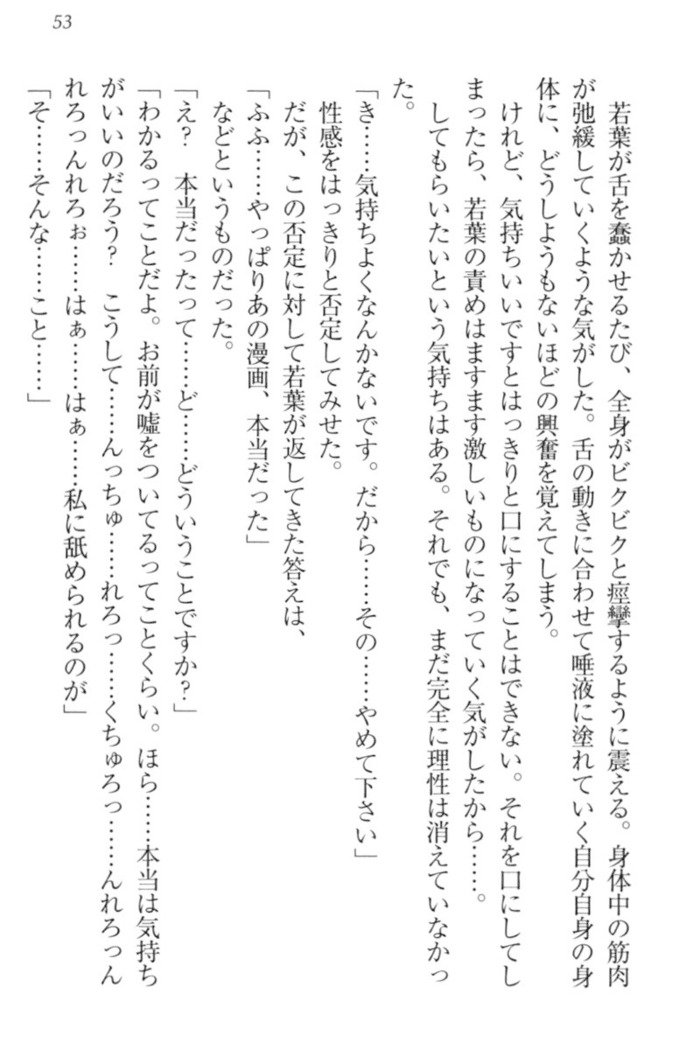 53
若葉が舌を蠢かせるたび、全身がビクビクと痙攣するように震える。身体中の筋肉
が弛緩していくような気がした。舌の動きに合わせて唾液に塗れていく自分自身の身
体に、どうしようもないほどの興奮を覚えてしまう。
けれど、気持ちいいですとはっきりと口にすることはできない。それを口にしてし
まったら、若葉の責めはますます激しいものになっていく気がしたから……。
してもらいたいという気持ちはある。それでも、まだ完全に理性は消えていなかっ
た。
「き……気持ちよくなんかないです。だから……その……やめて下さい」
性感をはっきりと否定してみせた。
だが、この否定に対して若葉が返してきた答えは、
「ふふ……やっぱりあの漫画、本当だった」
などというものだった。
「え？　本当だったって……ど……どういうことですか？」
「わかるってことだよ。お前が嘘をついてるってことくらい。ほら……本当は気持ち
がいいのだろう？　こうして……んっちゅ……れろっ……くちゅろっ……んれろっん
れろっんれろぉ……はぁ……はぁ……私に舐められるのが」
「そ……そんな……こと……」